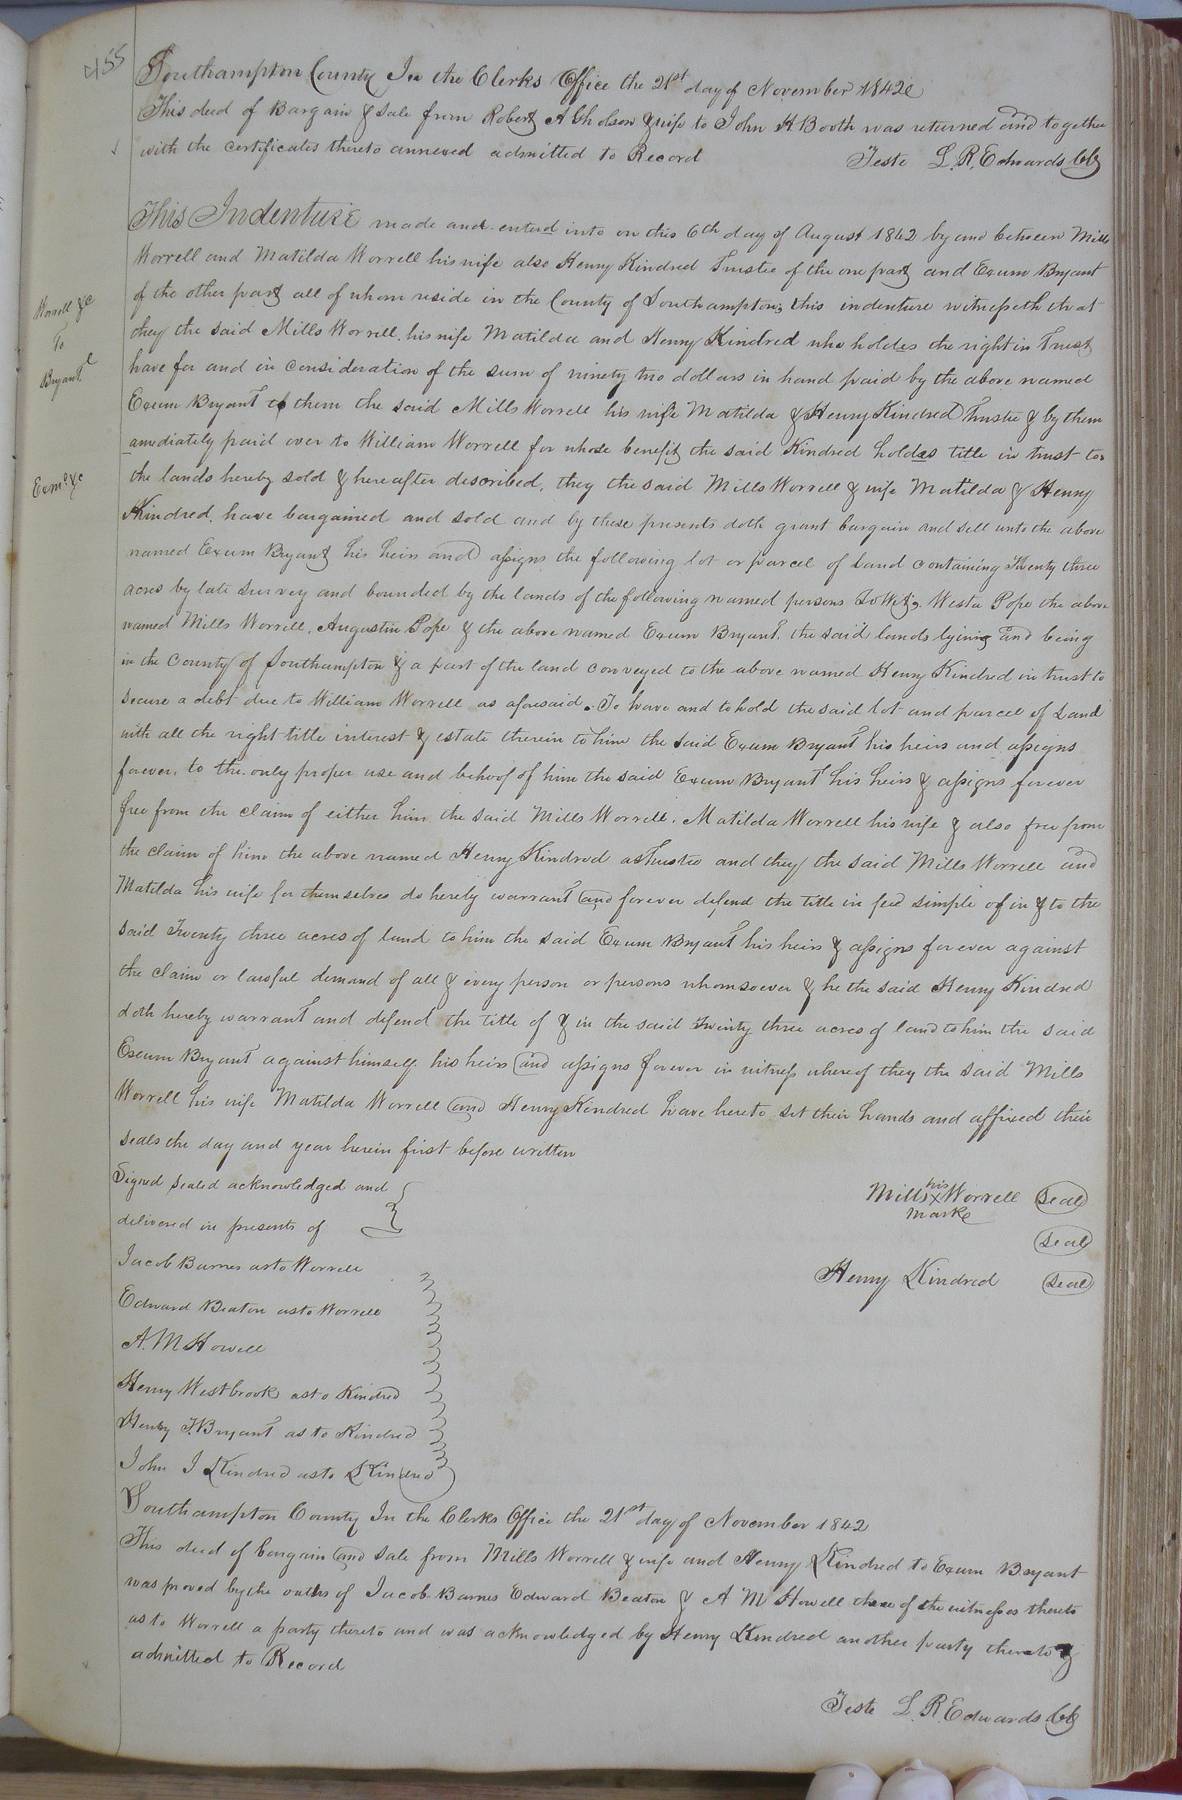 455
Southampton County In the Clerks Office the 21st day of November 1842
This deed of Bargain & Sale from Robert A Gholson & wife to John H Booth was returned and together
with the certificates thereto annexed admitted to Record Teste L. R. Edwards Clk
This Indenture made and enterd into on this 6th day of August 1842 by and between Mills
Worrell and Matilda Worrell his wife also Henry Kindred Trustee of the one part and Exum Bryant
of the other part all of whom reside in the County of Southampton; this indenture witnesseth that
they the said Mills Worrell, his wife Matilda and Henry Kindred who holdes the right in Trust
have for and in consideration of the sum of ninety two dollars in hand paid by the above named
Exum Bryant to them the said Mills Worrell his wife Matilda & Henry Kindred Trustee & by them
amediately paid over to William Worrell for whose benefit the said Kindred holdes title in trust to
the lands hereby sold & hereafter described, they the said Mills Worrell & wife Matilda & Henry
Kindred, have bargained and sold and by these presents doth grant bargain and sell unto the above
named Exum Bryant his heirs and assigns the following lot or parcel of Land containing Twenty three
acres by late survey and bounded by the lands of the following named persons To Wit, Westa Pope the above
named Mills Worrell, Augustin Pope & the above named Exum Bryant, the said lands lying and being
in the County of Southampton & a part of the land conveyed to the above named Henry Kindred in trust to
secure a debt due to William Worrell as aforesaid. To have and to hold the said lot and parcel of Land
with all the right title interest & estate therein to him the said Exum Bryant his heirs and assigns
forever, to the only proper use and behoof of him the said Exum Bryant his heirs & assigns forever
free from the claim of either him the said Mills Worrell, Matilda Worrell his wife & also free from
the claim of him the above named Henry Kindred as Trustee and they the said Mills Worrell and
Matilda his wife for themselves do hereby warrant and forever defend the title in fee simple of in & to the
said Twenty three acres of land to him the said Exum Bryant his heirs & assigns forever against
the claim or lawful demand of all & every person or persons whomsoever & he the said Henry Kindred
doth hereby warrant and defend the title of & in the said Twenty three acres of land to him the said
Exum Bryant against himself his heirs and assigns forever in witness whereof they the said Mills
Worrell his wife Matilda Worrell and Henry Kindred have hereto set their hands and affixed their
seals the day and year herein first before written
Signed sealed acknowledged and
delivered in presents of
Mills his X mark Worrell Seal
Seal
Jacob Barnes as to Worrell
Henry Kindred Seal
Edward Beaton as to Worrell
A. M Howell
Henry Westbrook as to Kindred
Henry J. Bryant as to Kindred
John J Kindred as to Kindred
Southampton County In the Clerks Office the 21st day of November 1842
This deed of bargain and sale from Mills Worrell & wife and Henry Kindred to Exum Bryant
was proved by the oaths of Jacob Barnes Edward Beaton & A M Howell three of the witnesses thereto
as to Worrell a party thereto and was acknowledged by Henry Kindred another party thereto &
admitted to Record
Teste L. R. Edwards Clk
Worrell &c
To
Bryant
Exmd &c